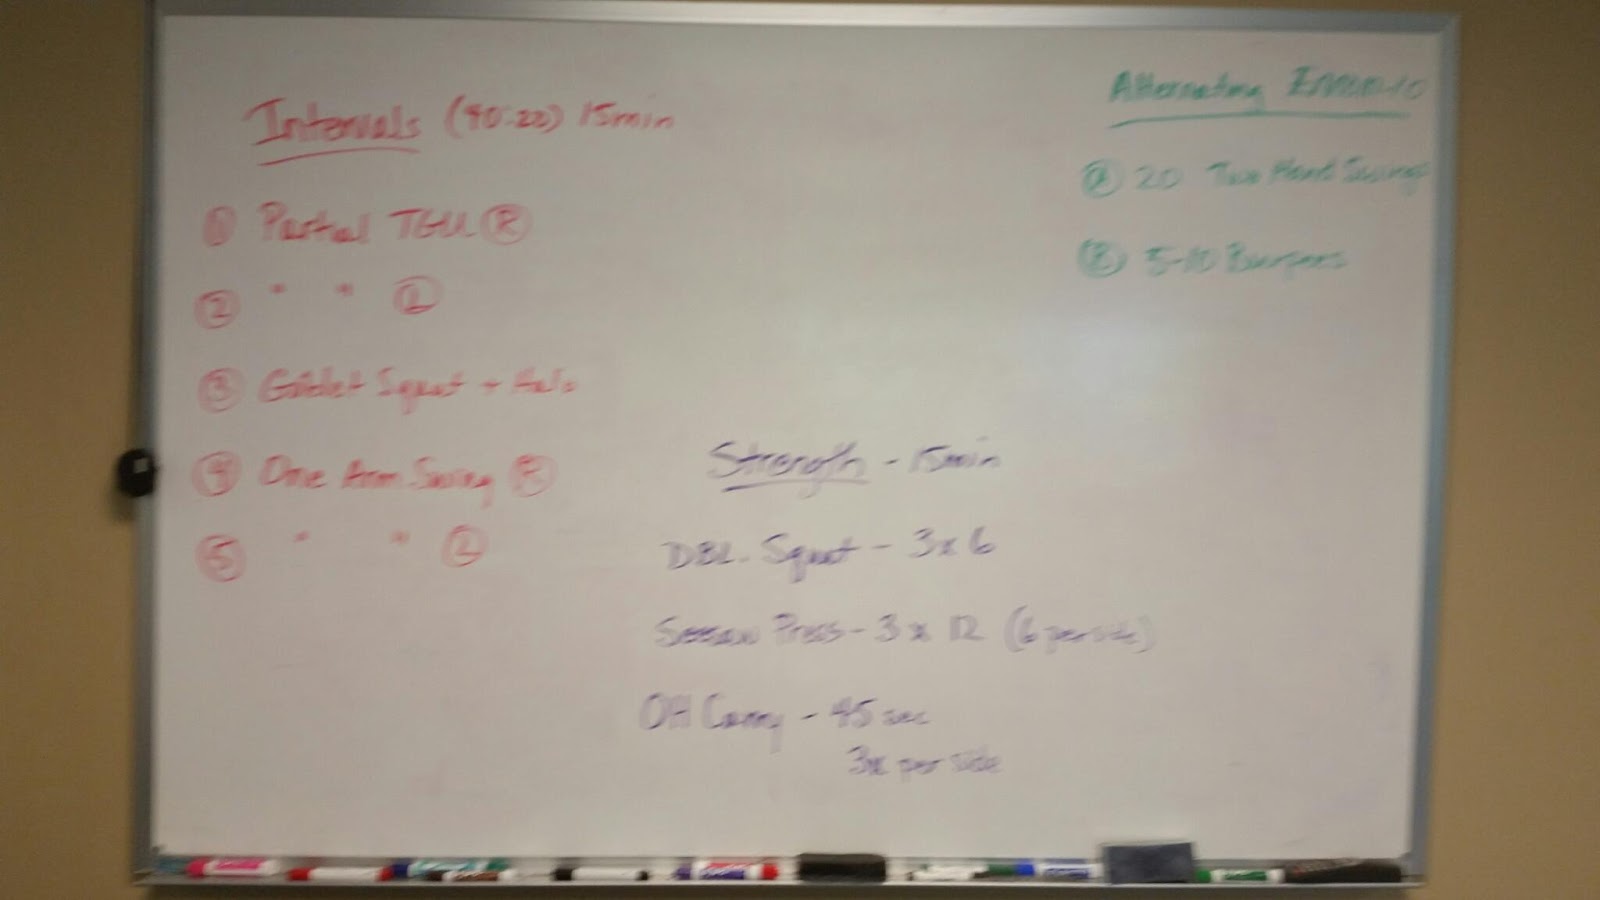 Intervals (40:20) 15min
① Partial TGU Ⓡ
② " " Ⓛ
③ Goblet Squat + Halo
④ One Arm Swing Ⓡ
⑤ " " Ⓛ
Strength - 15min
DBL. Squat - 3x6
Seesaw Press - 3 x 12 (6 per side)
OH Carry - 45 sec
3x per side
Alternating EMOM-10
Ⓐ 20 Two Hand Swings
Ⓑ 5-10 Burpees